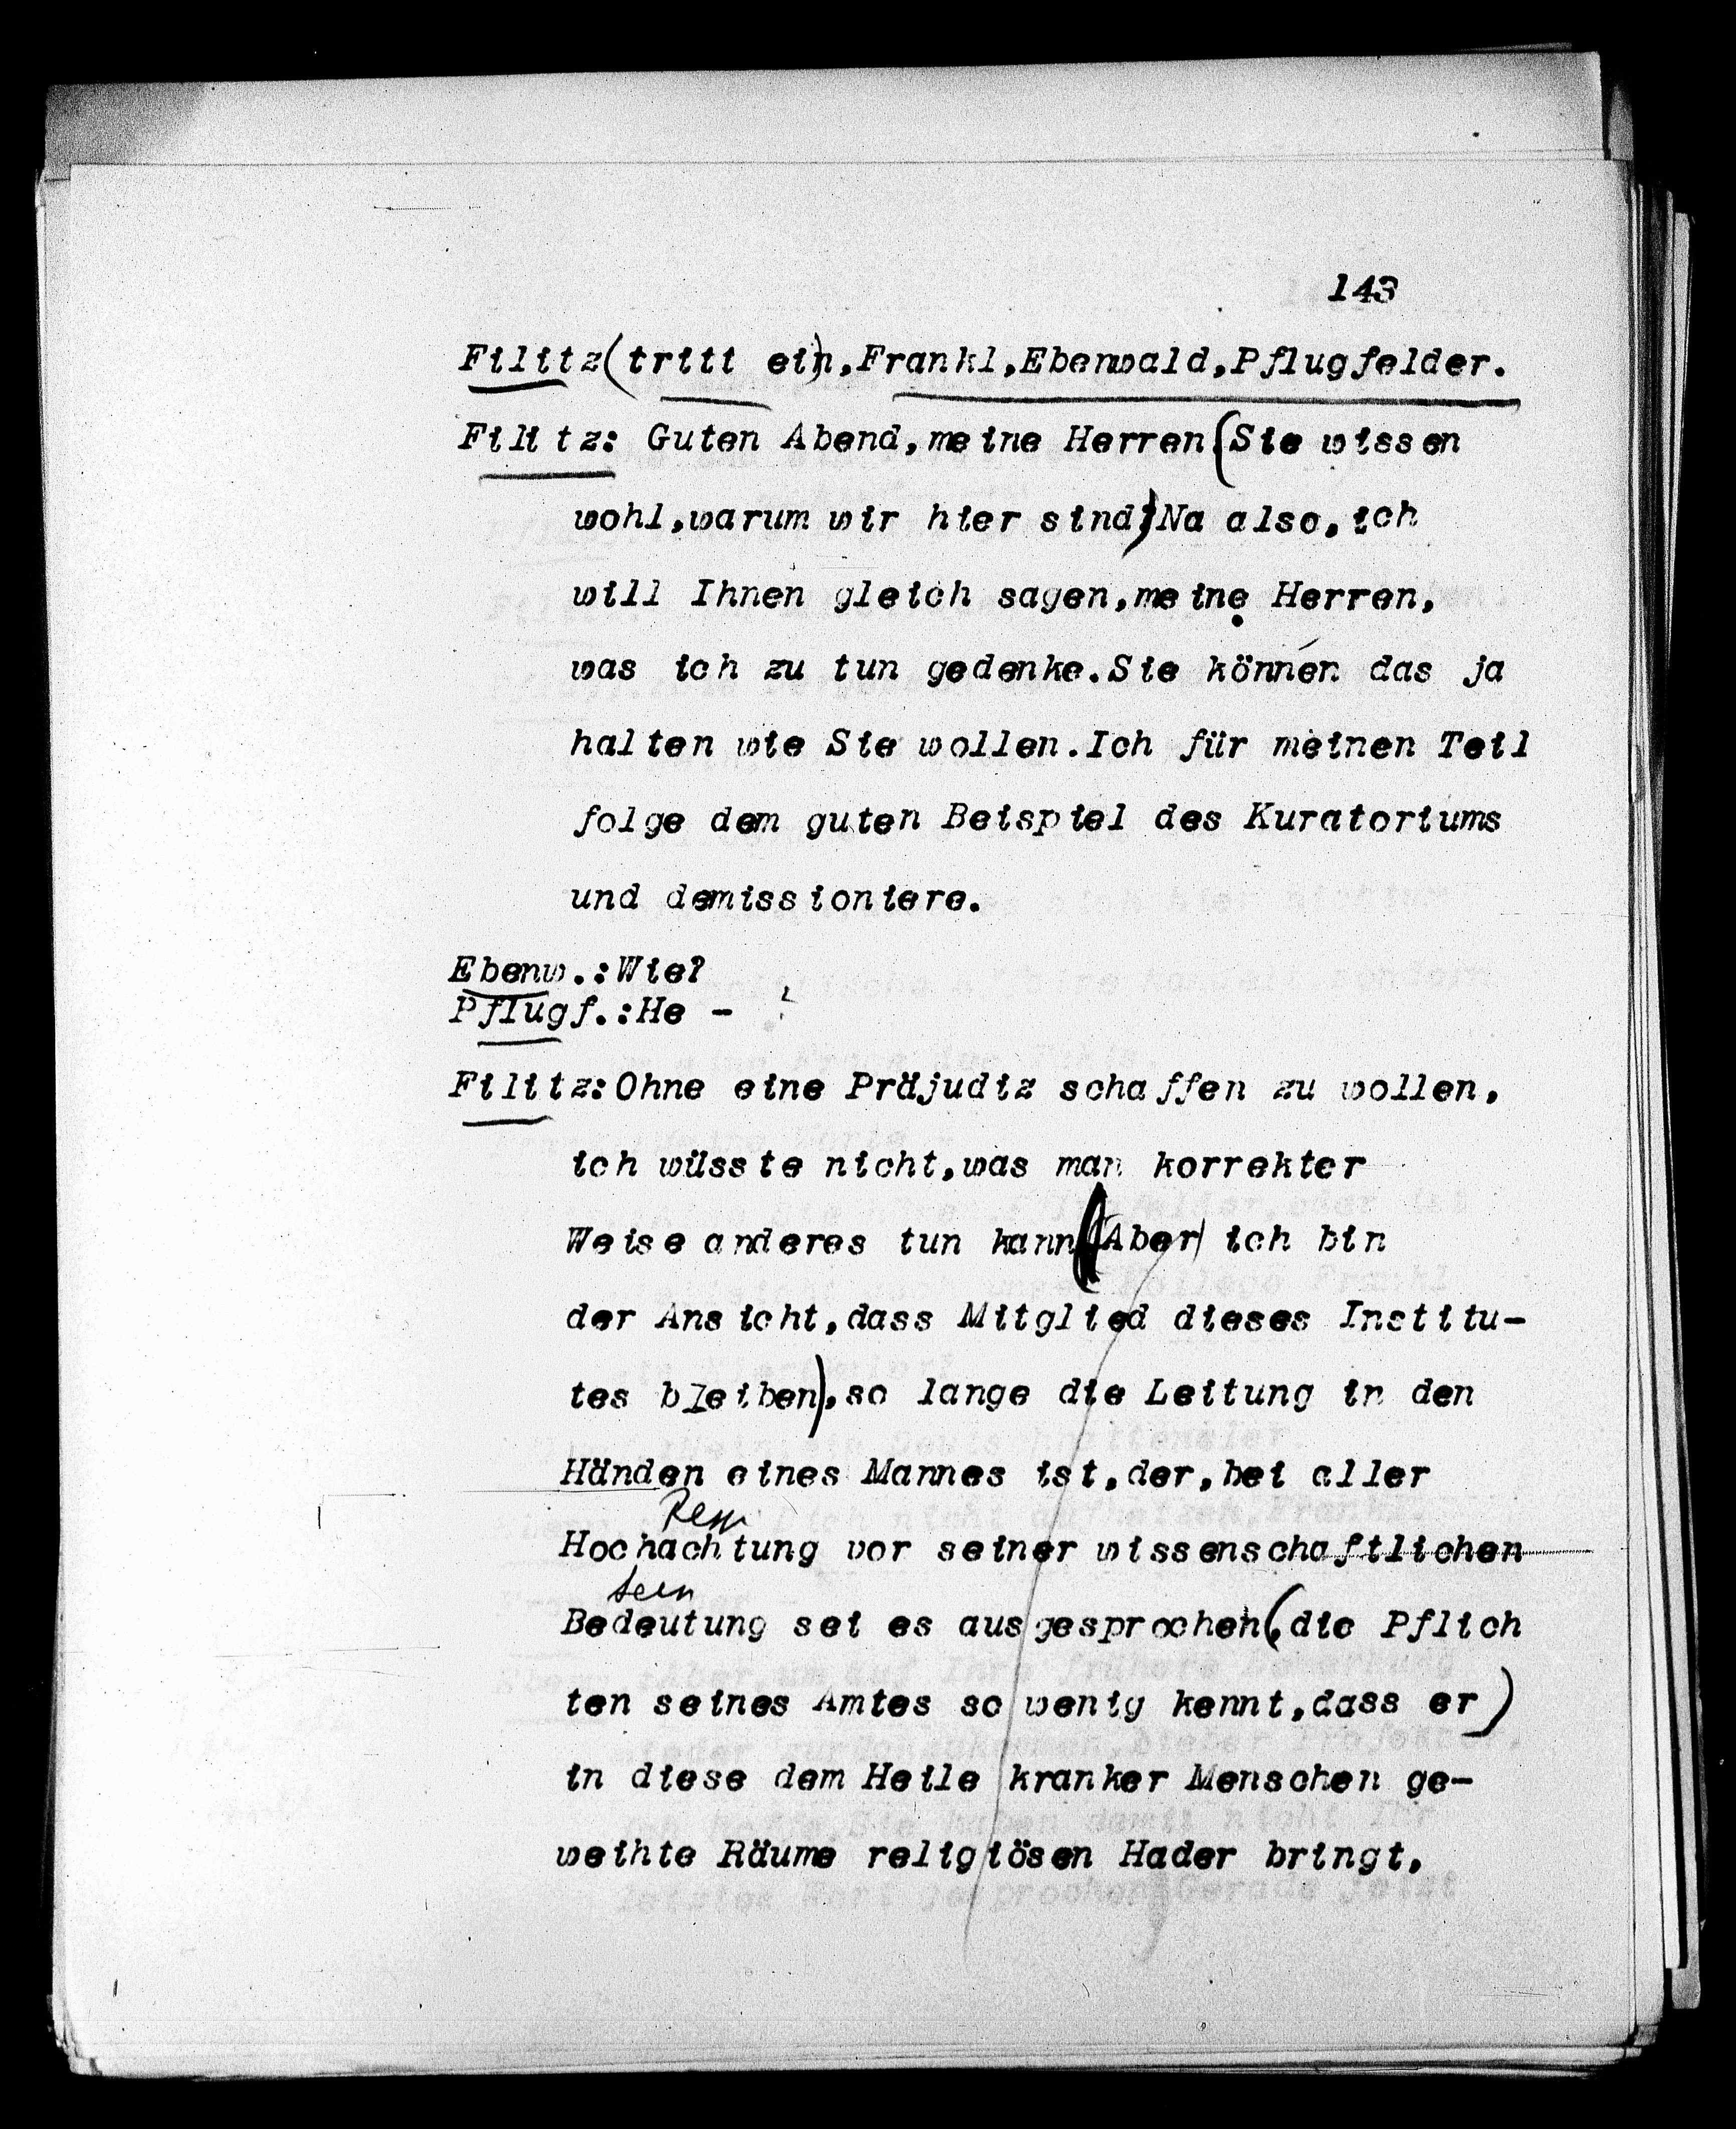 143
Filitz(tritt ein),Frankl,Ebenwald,Pflugfelder.
Filitz: Guten Abend,meine Herren(Sie wissen
wohl,warum wir hier sind)Na also,ich
will Ihnen gleich sagen,meine Herren,
was ich zu tun gedenke.Sie können das ja
halten wie Sie wollen.Ich für meinen Teil
folge dem guten Beispiel des Kuratoriums
und demissioniere.
Ebenw.:Wie?
Pflugf.:He - ?
Filitz:Ohne eine Präjudiz schaffen zu wollen,
ich wüsste nicht,was man korrekter
Weise anderes tun kann(Aber) ich bin
der Ansicht,dass Mitglied dieses Institu-
tes bleiben),so lange die Leitung in den
Händen eines Mannes ist,der,bei aller
Hochachtung vor seiner wissenschaftlichen
Bedeutung sei es ausgesprochen(die Pflich
ten seines Amtes so wenig kennt,dass er)
in diese dem Heile kranker Menschen ge-
weihte Räume religiösen Hader bringt,